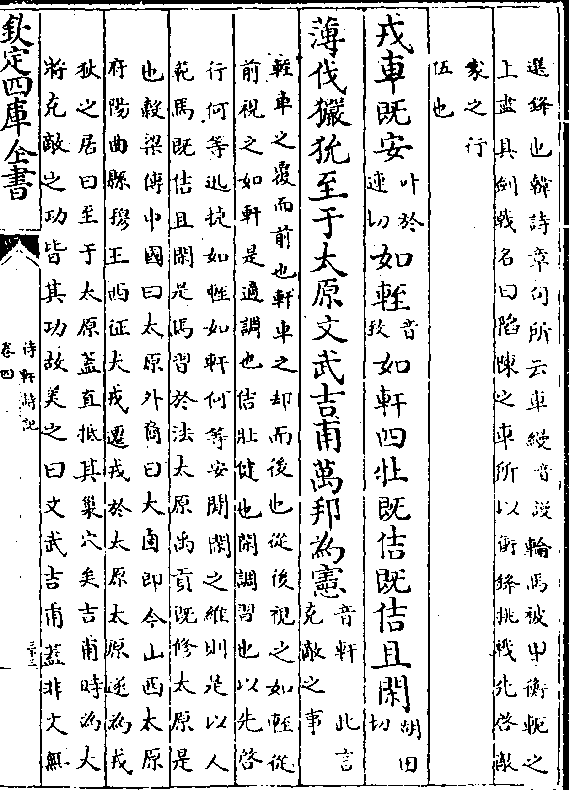 選鋒也韓詩章句所云車縵音設輪馬被甲衡軛之
上盡具劍㦸名曰陷陳之車所以衝鋒挑戰先啓敵
家之行
伍也
戎車既安叶於連切如輊音致如軒四牡既佶既佶且閑胡田切
薄伐玁狁至于太原文武吉甫萬邦為憲音軒 此言克敵之事
輊車之覆而前也軒車之却而後也從後視之如輊從
前視之如軒是適調也佶壯健也閑調習也以先啓
行何等迅㨗如輊如軒何等安閒閑之維則是以人
範馬既佶且閑是馬習於法太原禹貢既修太原是
也榖梁傳中國曰太原外裔曰大鹵即今山西太原
府陽曲縣穆王西征犬戎遷戎於太原太原遂為戎
狄之居曰至于太原蓋直抵其巢穴矣吉甫時為大
將克敵之功皆其功故美之曰文武吉甫蓋非文無
欽定四庫全書
待軒詩記
卷四